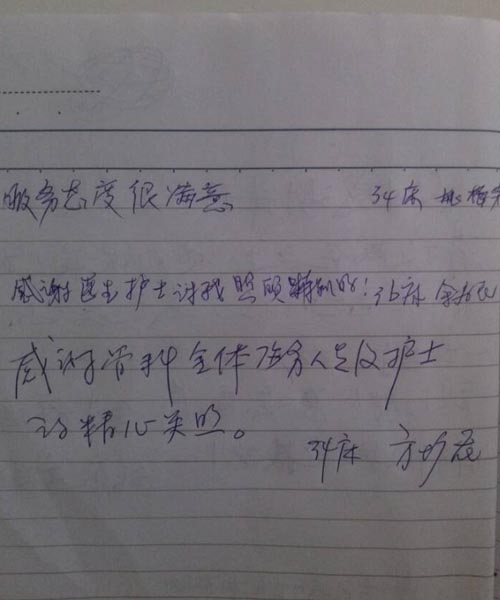 服务态度很满意 34床 姚
感谢医生护士对我照顾特别的！36床
感谢骨科全体医务人员及护士
的精心关照。
34床 方